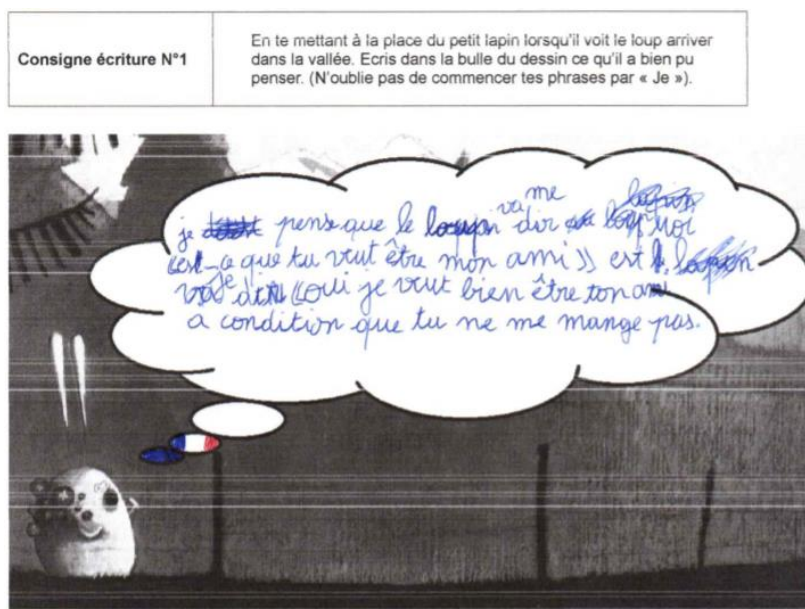 Consigne écriture N°1
En te mettant à la place du petit lapin lorsqu'il voit le loup arriver
dans la vallée. Ecris dans la bulle du dessin ce qu'il a bien pu
penser. (N'oublie pas de commencer tes phrases par « Je »).
je pense que le va me dir
est-ce que tu veut être mon ami » est
je oui je veut bien être ton ami
a condition que tu ne me mange pas.